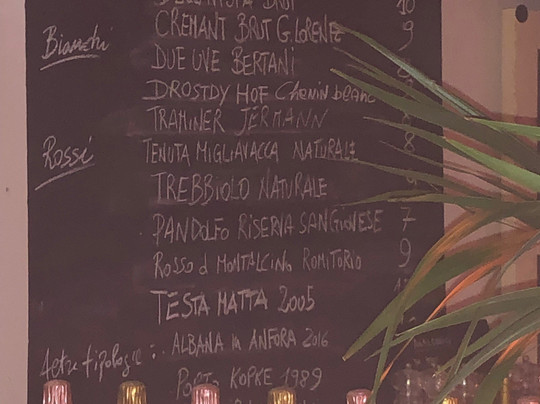 BRUT 10
CREMANT BRUT G. LORENTZ 9
Bianchi
DUE UVE BERTANI
DROSTDY HOF Chenin blanc
TRAMINER JERMANN 8
Rossi
TENUTA MIGLIAVACCA NATURALE 8
TREBBIOLO NATURALE
PANDOLFO RISERVA SANGIOVESE 7
ROSSO d MONTALCINO ROMITORIO 9
TESTA MATTA 2005
Altre tipologie :
ALBANA in ANFORA 2016
PORTO KOPKE 1989